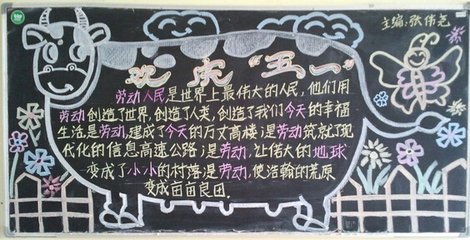 主编：张伟艺
欢庆“五一”
劳动人民是世界上最伟大的人民，他们用
劳动创造了世界，创造了人类，创造了我们今天的幸福
生活是劳动，建成了今天的万丈高楼；是劳动筑就了现
代化的信息高速公路；是劳动，让偌大的地球
变成了小小的村落；是劳动，使浩翰的荒原
变成亩亩良田。